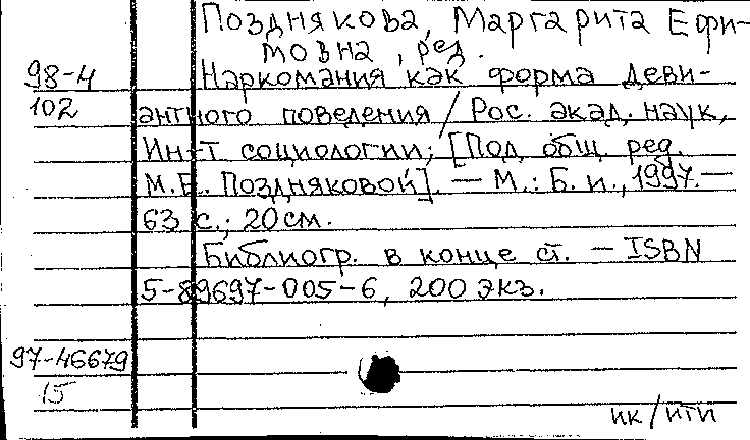 Позднякова, Маргарита Ефи-
мовна, ред.
98-4 Наркомания как форма деви-
102 антного поведения / Рос. акад. наук,
Ин-т социологии; [Под общ. ред.
М.Е. Поздняковой]. — М.: Б. и., 1997. —
63 с.; 20 см.
Библиогр. в конце ст. — ISBN
5-89697-005-6, 200 экз.
97-46679
15
ик/ити